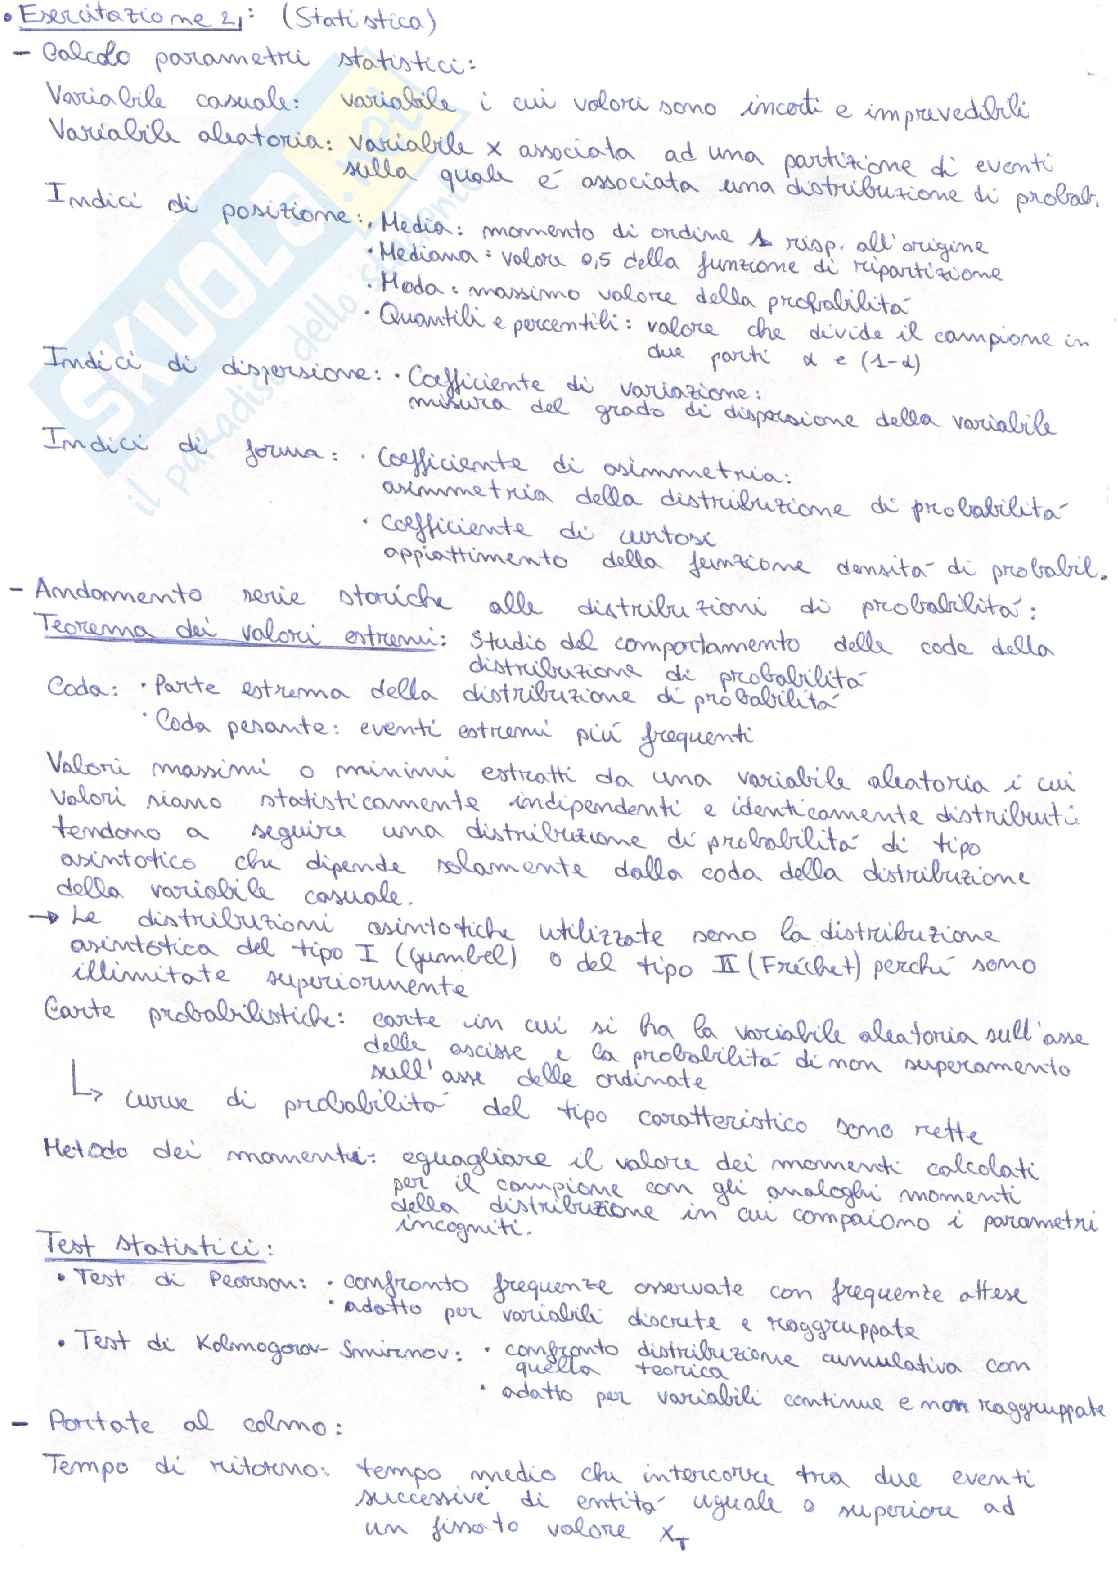 • Esercitazione 2: (Statistica)
- Calcolo parametri statistici:
Variabile casuale: variabile i cui valori sono incerti e imprevedibili
Variabile aleatoria: variabile x associata ad una partizione di eventi
sulla quale é associata una distribuzione di probab.
Indici di posizione: • Media: momento di ordine 1 risp. all'origine
• Mediana: valore 0,5 della funzione di ripartizione
• Moda: massimo valore della probabilitá
• Quantili e percentili: valore che divide il campione in
due parti α e (1-α)
Indici di dispersione: • Coefficiente di variazione:
misura del grado di dispersione della variabile
Indici di forma: • Coefficiente di asimmetria:
asimmetria della distribuzione di probabilitá
• Coefficiente di curtosi
appiattimento della funzione densitá di probabil.
- Andamento serie storiche alle distribuzioni di probabilitá:
Teorema dei valori estremi: Studio del comportamento delle code della
distribuzione di probabilitá
Coda: • Parte estrema della distribuzione di probabilitá
• Coda pesante: eventi estremi piú frequenti
Valori massimi o minimi estratti da una variabile aleatoria i cui
valori siano statisticamente indipendenti e identicamente distribuiti
tendono a seguire una distribuzione di probabilitá di tipo
asintotico che dipende solamente dalla coda della distribuzione
della variabile casuale.
→ Le distribuzioni asintotiche utilizzate sono la distribuzione
asintotica del tipo I (Gumbel) o del tipo II (Fréchet) perché sono
illimitate superiormente
Carte probabilistiche: carte in cui si ha la variabile aleatoria sull'asse
delle ascisse e la probabilitá di non superamento
sull'asse delle ordinate
↳ curve di probabilitá del tipo caratteristico sono rette
Metodo dei momenti: eguagliare il valore dei momenti calcolati
per il campione con gli analoghi momenti
della distribuzione in cui compaiono i parametri
incogniti.
Test statistici:
• Test di Pearson: • confronto frequenze osservate con frequenze attese
• adatto per variabili discrete e raggruppate
• Test di Kolmogorov-Smirnov: • confronto distribuzione cumulativa con
quella teorica
• adatto per variabili continue e non raggruppate
- Portate al colmo:
Tempo di ritorno: tempo medio che intercorre tra due eventi
successivi di entitá uguale o superiore ad
un fissato valore x_T
SKUOLA.net
il paradiso dello studente